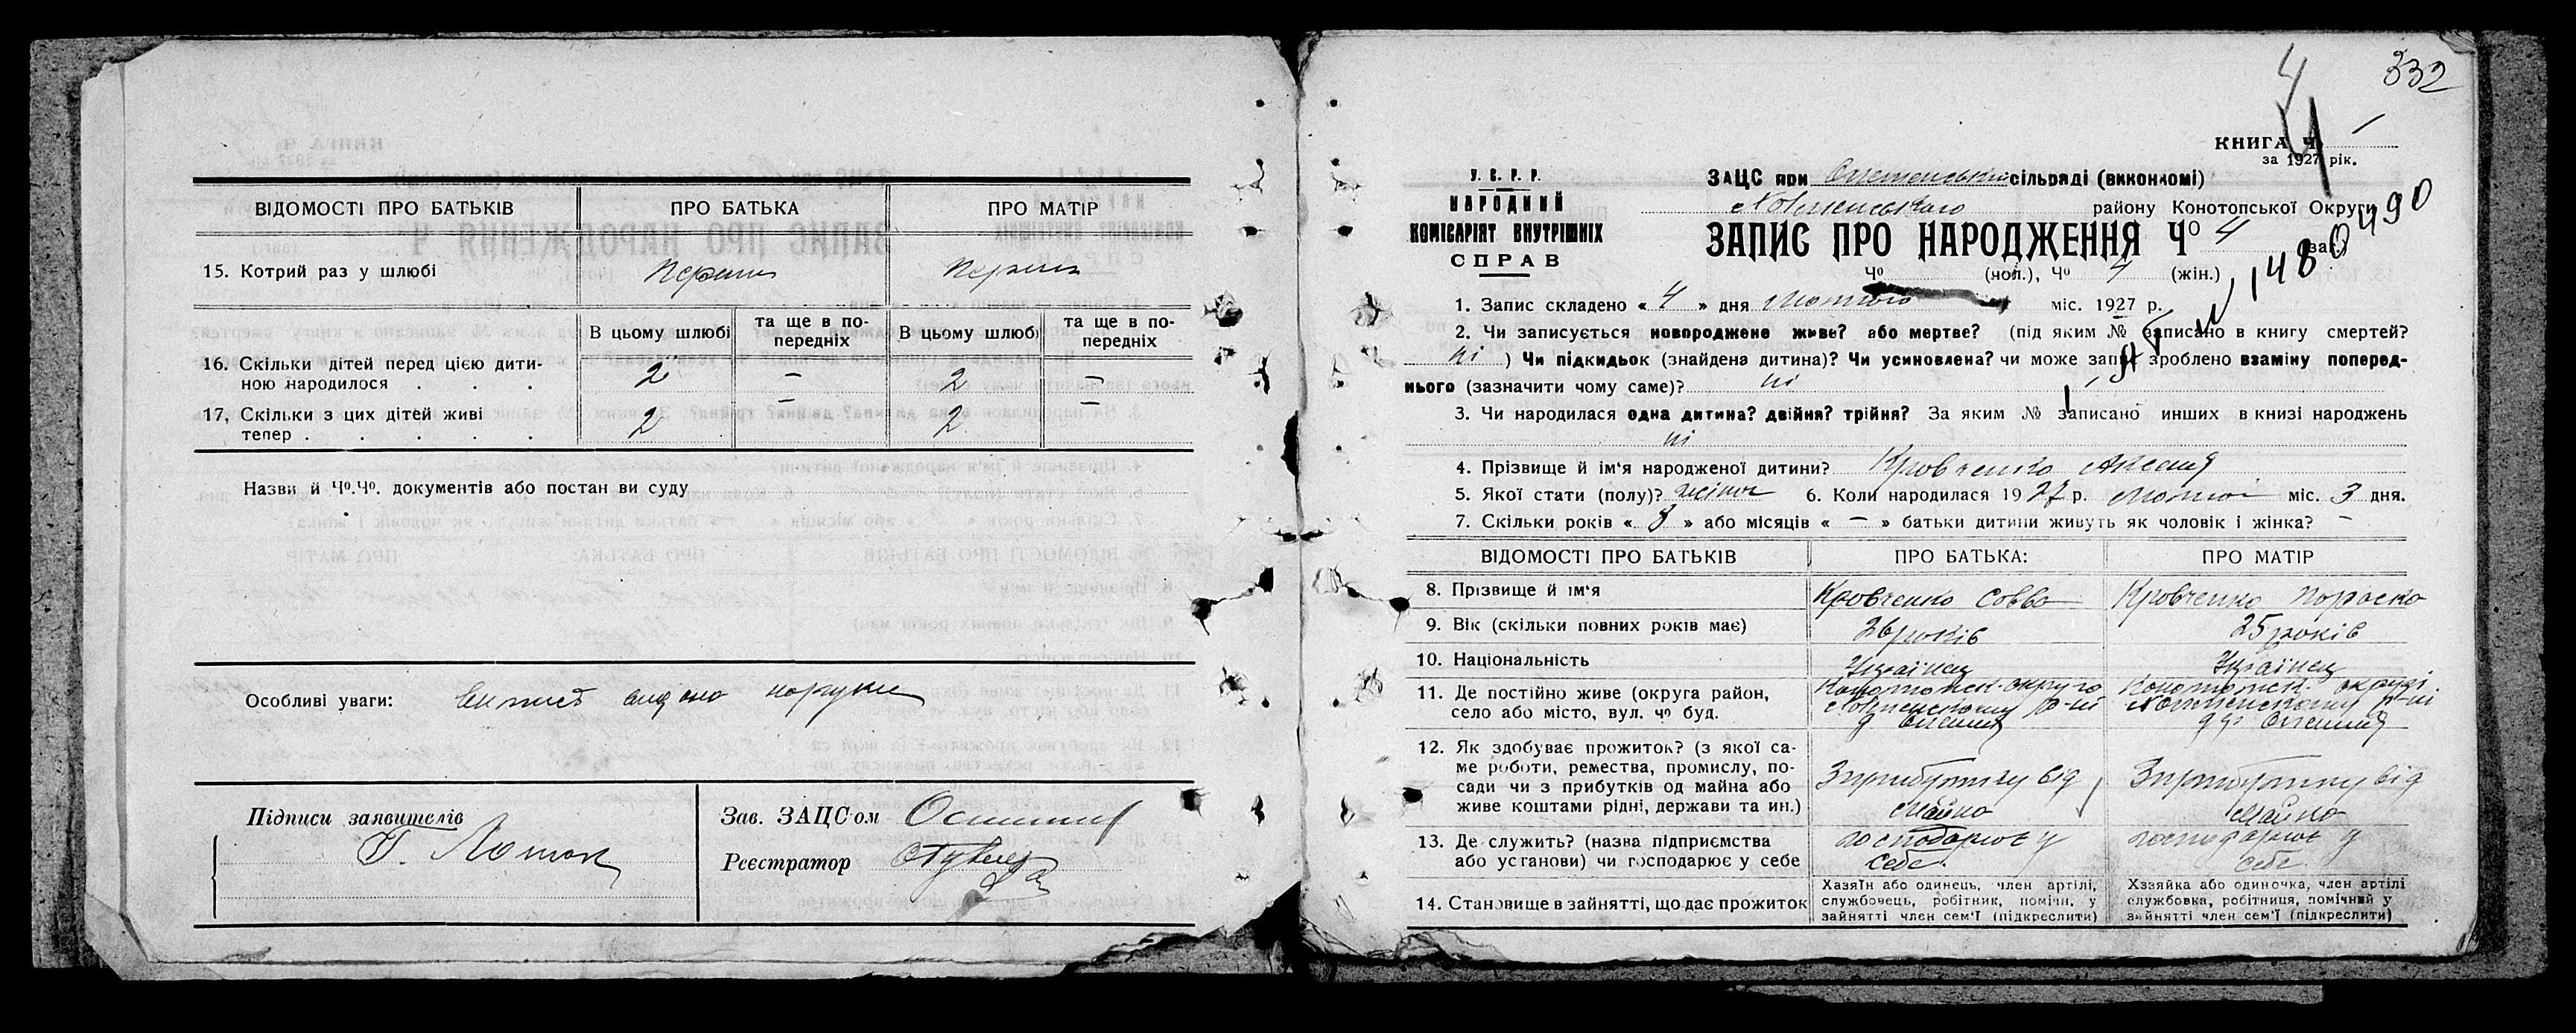 ВІДОМОСТІ ПРО БАТЬКІВ ПРО БАТЬКА ПРО МАТІР
15. Котрий раз у шлюбі
В цьому шлюбі та ще в по- В цьому шлюбі та ще в по-
передніх передніх
16. Скільки дітей перед цією дити-
ною народилося . . . 2 – 2 –
17. Скільки з цих дітей живі
тепер . . . . . 2 – 2 –
Назви й Чо.Чо. документів або постан ви суду
Особливі уваги:
Підписи заявителів
Зав. ЗАЦС'ом
Реєстратор
332
4
КНИГА Ч.
за 1927 рік.
У. С. Р. Р.
НАРОДНИЙ
КОМІСАРІЯТ ВНУТРІШНІХ
СПРАВ
ЗАЦС при сільраді (виконкомі)
району Конотопської Округи
490
ЗАПИС ПРО НАРОДЖЕННЯ Чо 4 заг.
1480
Чо (чол.), Чо 4 (жін.)
1. Запис складено « 4 » дня лютого міс. 1927 р.
2. Чи записується новороджене живе? або мертве? (під яким № записано в книгу смертей?
ні ) Чи підкидьок (знайдена дитина)? Чи усиновлена? чи може запис зроблено взаміну поперед-
нього (зазначити чому саме)? ні
3. Чи народилася одна дитина? двійня? трійня? За яким № записано инших в книзі народжень
ні
4. Прізвище й ім'я народженої дитини? Кровченко
5. Якої стати (полу)? жіноч 6. Коли народилася 1927 р. міс. 3 дня.
7. Скільки років « » або місяців « – » батьки дитини живуть як чоловік і жінка? –
ВІДОМОСТІ ПРО БАТЬКІВ ПРО БАТЬКА: ПРО МАТІР
8. Прізвище й ім'я Кровченко Савва Кровченко Пораска
9. Вік (скільки повних років має) 26 років 25 років
10. Національність Українец Українец
11. Де постійно живе (округа район,
село або місто, вул. чо буд.
12. Як здобуває прожиток? (з якої са-
ме роботи, ремества, промислу, по-
сади чи з прибутків од майна або
живе коштами рідні, держави та ин.)
Зприбутку від Майна Зприбутку від Майна
13. Де служить? (назва підприємства
або установи) чи господарює у себе
господарює у себе. господарює у себе.
14. Становище в зайнятті, що дає прожиток
Хазяїн або одинець, член артілі,
службовець, робітник, помічн. у
зайнятті член сем'ї (підкреслити)
Хазяйка або одиночка, член артілі
службовка, робітниця, помічний у
зайнятті член сем'ї (підкреслити)